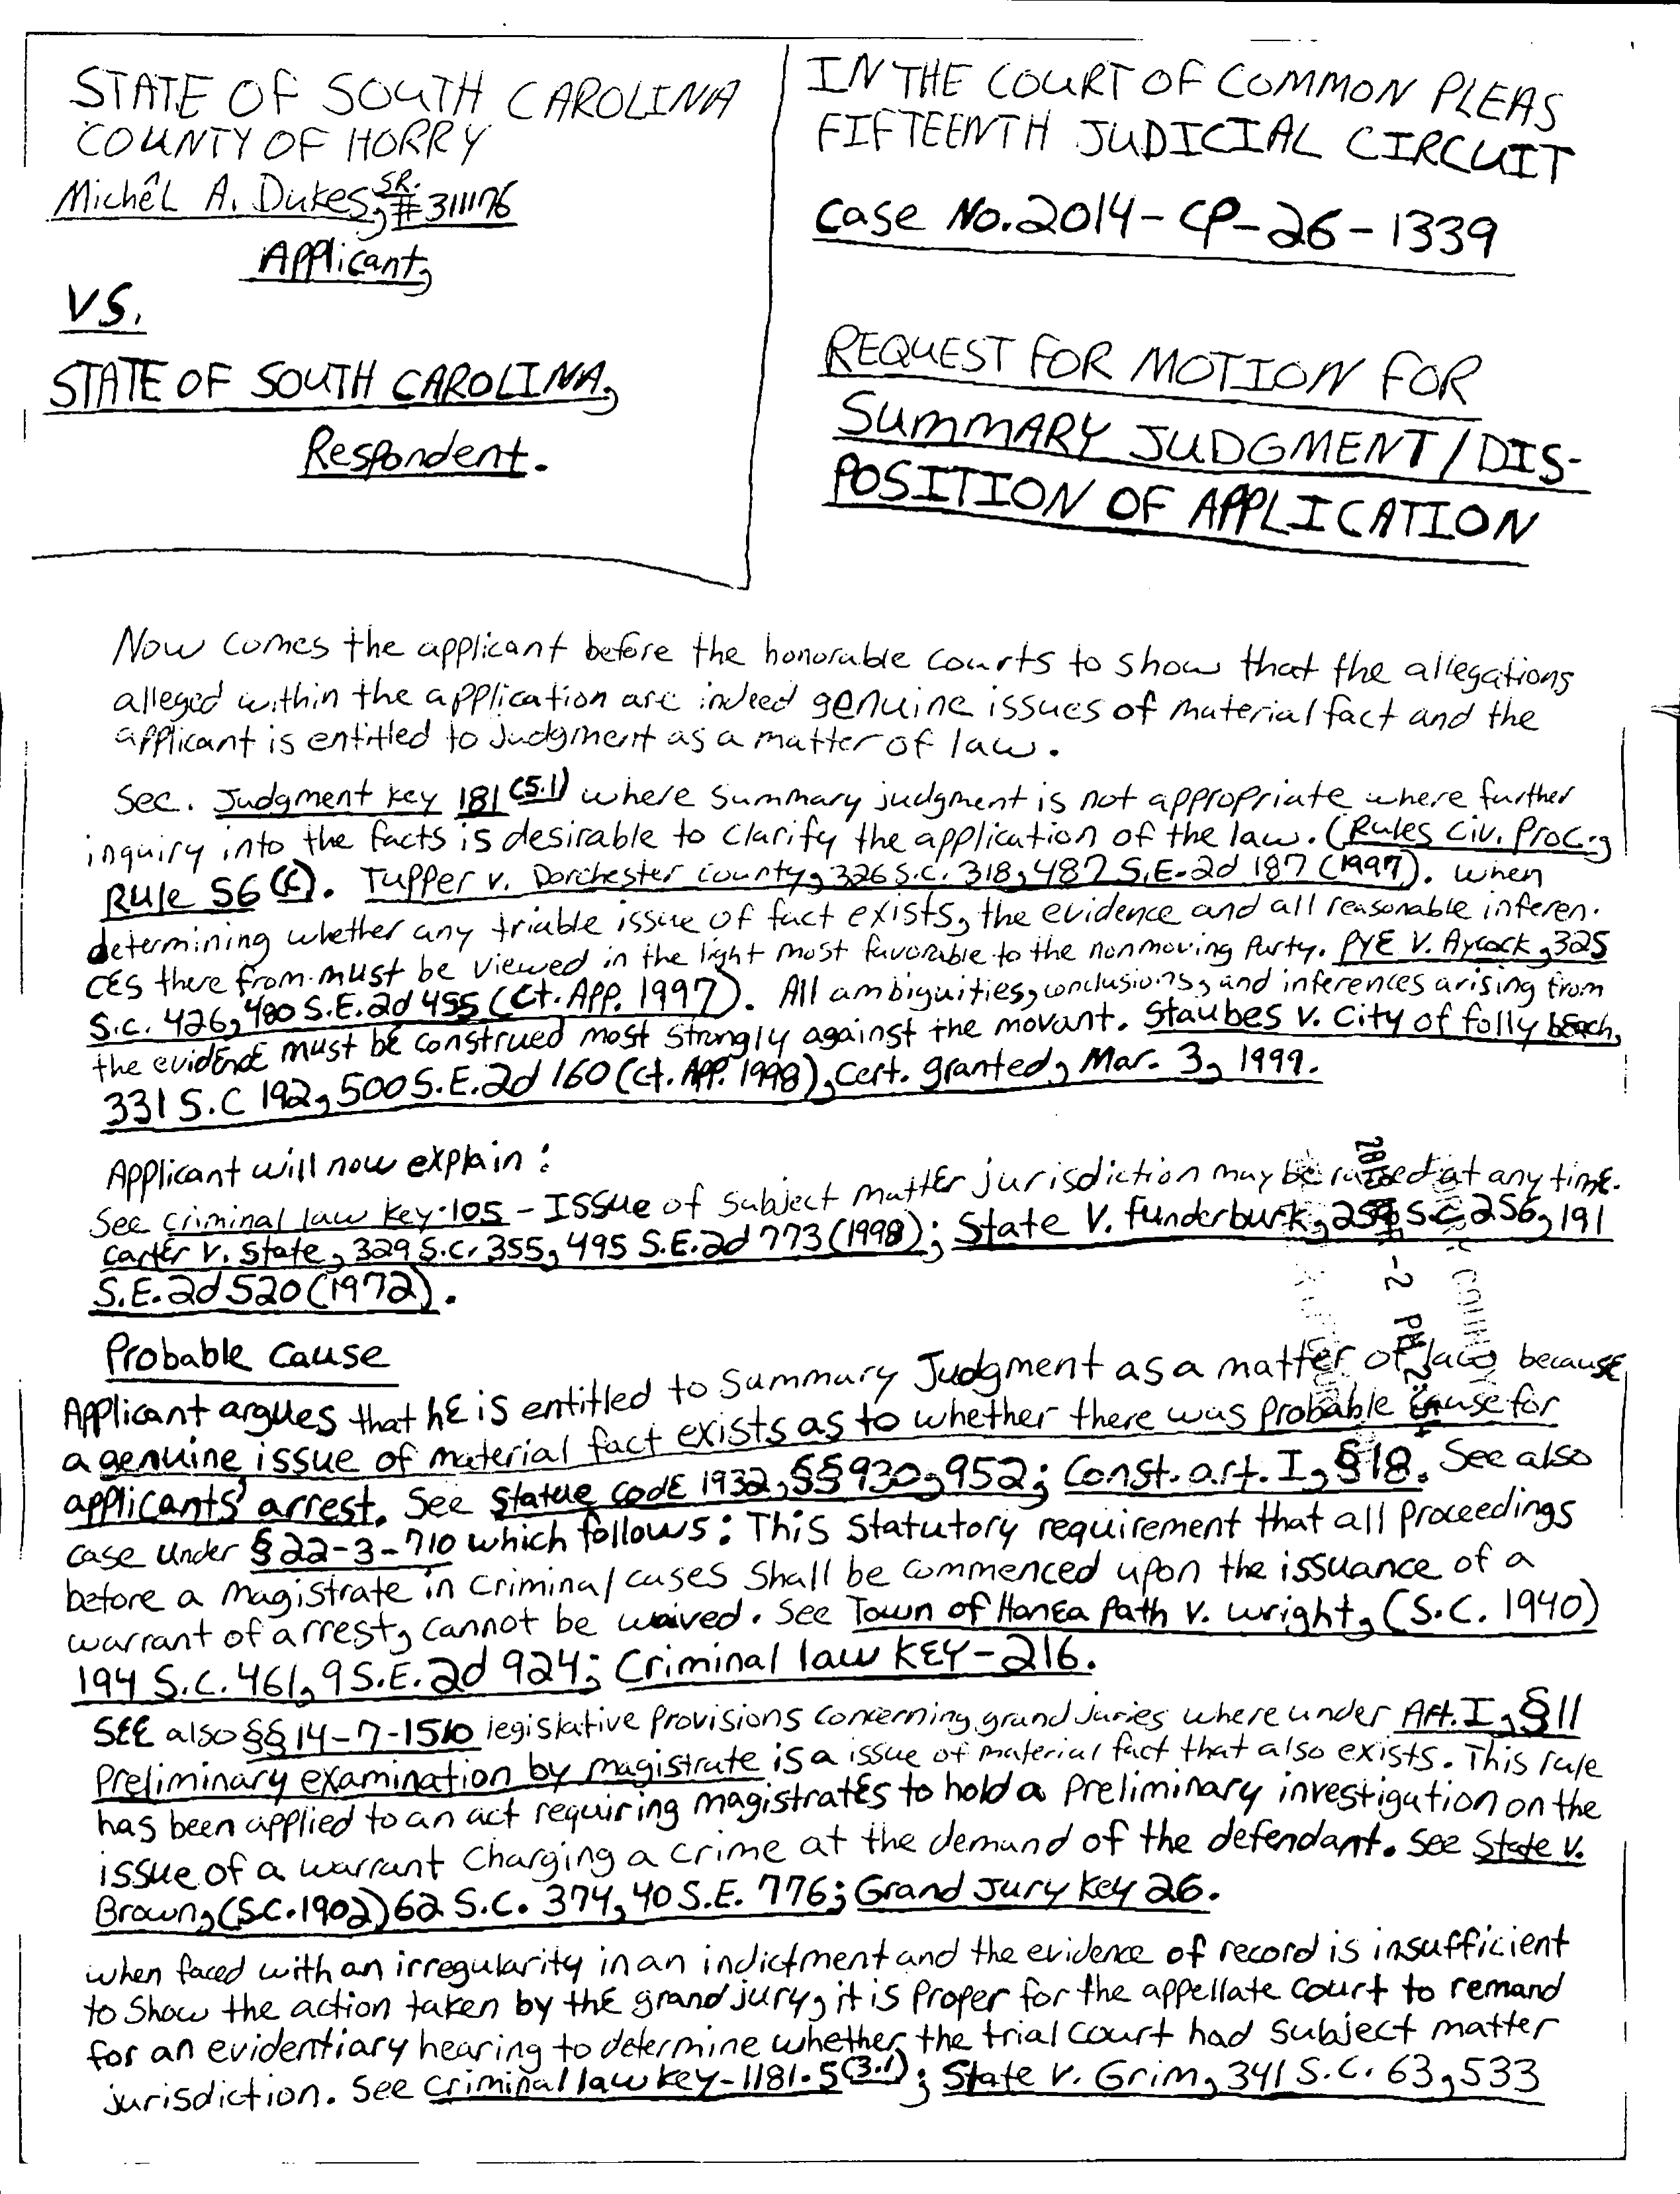 STATE OF SOUTH CAROLINA
COUNTY OF HORRY
Michêl A. Dukes, SR. # 311176
Applicant,
VS.
STATE OF SOUTH CAROLINA,
Respondent.
IN THE COURT OF COMMON PLEAS
FIFTEENTH JUDICIAL CIRCUIT
Case No. 2014-CP-26-1339
REQUEST FOR MOTION FOR
SUMMARY JUDGMENT/DIS-
POSITION OF APPLICATION
Now comes the applicant before the honorable courts to show that the allegations
alleged within the application are indeed genuine issues of material fact and the
applicant is entitled to judgment as a matter of law.
Sec. Judgment Key 181(5.1) where summary judgment is not appropriate where further
inquiry into the facts is desirable to clarify the application of the law. (Rules Civ. Proc.,
Rule 56(c). Tupper v. Dorchester County, 326 S.C. 318, 487 S.E.2d 187 (1997). When
determining whether any triable issue of fact exists, the evidence and all reasonable inferen-
ces there from must be viewed in the light most favorable to the nonmoving party. PYE V. Aycock, 325
S.C. 426, 480 S.E.2d 455 (Ct. App. 1997). All ambiguities, conclusions, and inferences arising from
the evidence must be construed most strongly against the movant. Staubes v. City of folly beach,
331 S.C 192, 500 S.E.2d 160 (Ct. App. 1998), Cert. granted, Mar. 3, 1999.
Applicant will now explain:
See Criminal law Key·105 - Issue of subject matter jurisdiction may be raised at any time.
Carter v. State, 329 S.C. 355, 495 S.E.2d 773 (1998); State V. Funderburk, 259 S.C. 256, 191
S.E.2d 520 (1972).
-2 PM
COUNTY
Probable Cause
Applicant argues that he is entitled to Summary Judgment as a matter of law because
a genuine issue of material fact exists as to whether there was probable cause for
applicants' arrest. See Statue Code 1932, §§930, 952; Const. art. I, §18. See also
case under §22-3-710 which follows: This statutory requirement that all proceedings
before a magistrate in criminal cases shall be commenced upon the issuance of a
warrant of arrest, cannot be waived. See Town of Honea Path V. Wright, (S.C. 1940)
194 S.C. 461, 9 S.E.2d 924; Criminal law KEY-216.
SEE also §§14-7-1510 legislative provisions concerning grand juries where under Art. I, §11
Preliminary examination by magistrate is a issue of material fact that also exists. This rule
has been applied to an act requiring magistrates to hold a preliminary investigation on the
issue of a warrant charging a crime at the demand of the defendant. See State v.
Brown, (S.C. 1902) 62 S.C. 374, 40 S.E. 776; Grand Jury Key 26.
when faced with an irregularity in an indictment and the evidence of record is insufficient
to show the action taken by the grand jury, it is proper for the appellate court to remand
for an evidentiary hearing to determine whether the trial court had subject matter
jurisdiction. See Criminal law Key-1181.5(3.1); State v. Grim, 341 S.C. 63, 533